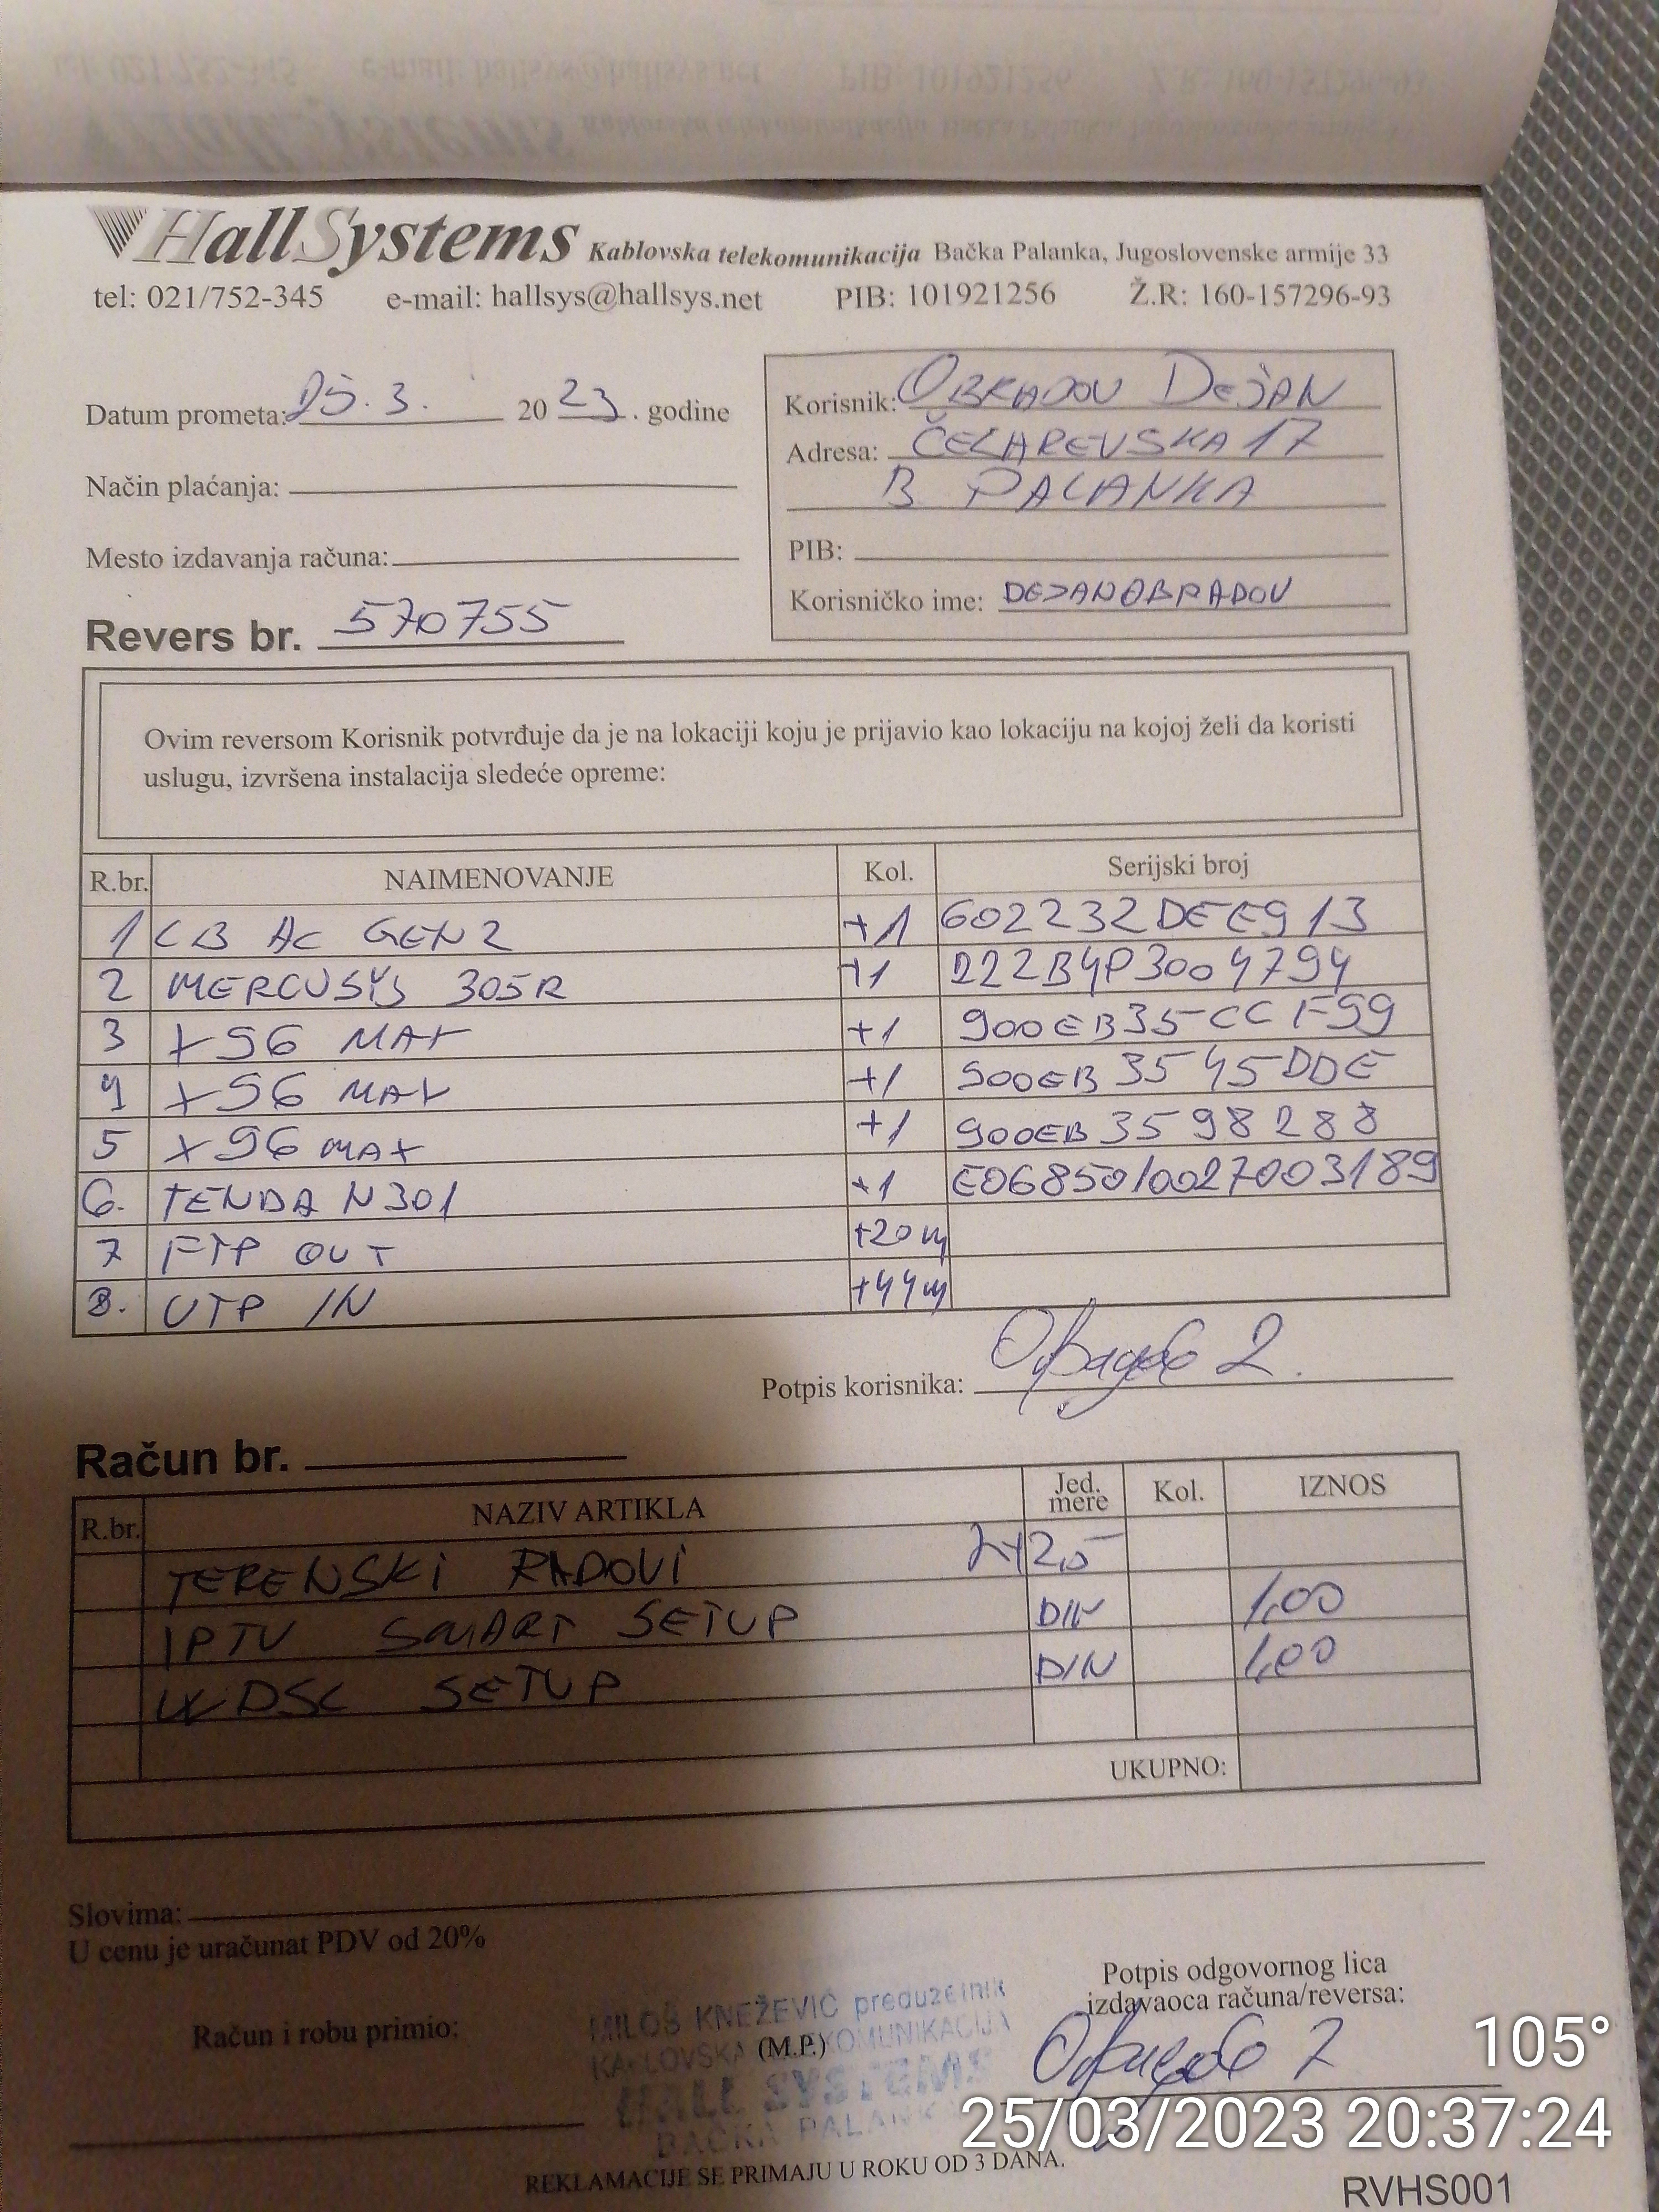 HallSystems Kablovska telekomunikacija Bačka Palanka, Jugoslovenske armije 33
tel: 021/752-345 e-mail: hallsys@hallsys.net PIB: 101921256 Ž.R: 160-157296-93
Datum prometa: 25.3. 2023. godine
Način plaćanja:
Mesto izdavanja računa:
Revers br. 570755
Korisnik: OBRADOV DEJAN
Adresa: ČELAREVSKA 17
B PALANKA
PIB:
Korisničko ime: DEJANOBRADOV
Ovim reversom Korisnik potvrđuje da je na lokaciji koju je prijavio kao lokaciju na kojoj želi da koristi
uslugu, izvršena instalacija sledeće opreme:
R.br. NAIMENOVANJE Kol. Serijski broj
1 LB AC GEN2 +1 602232DEE913
2 MERCUSYS 305R +1 222B4P3004794
3 X96 MAX +1 900EB35CCF99
4 X96 MAX +1 900EB3545DDE
5 X96 MAX +1 900EB3598288
6. TENDA N301 +1 E0685010027003189
7 FTP OUT +20m
8. UTP IN +44m
Potpis korisnika:
Račun br.
R.br. NAZIV ARTIKLA Jed. mere Kol. IZNOS
TERENSKI RADOVI 2x2,5
IPTV SMART SETUP DIN 1,00
WDSL SETUP DIN 1,00
UKUPNO:
Slovima:
U cenu je uračunat PDV od 20%
Potpis odgovornog lica
izdavaoca računa/reversa:
Račun i robu primio:
MILOŠ KNEŽEVIĆ preduzetnik
KABLOVSKA TELEKOMUNIKACIJA
(M.P.)
HALL SYSTEMS
BAČKA PALANKA
REKLAMACIJE SE PRIMAJU U ROKU OD 3 DANA.
RVHS001
105°
25/03/2023 20:37:24